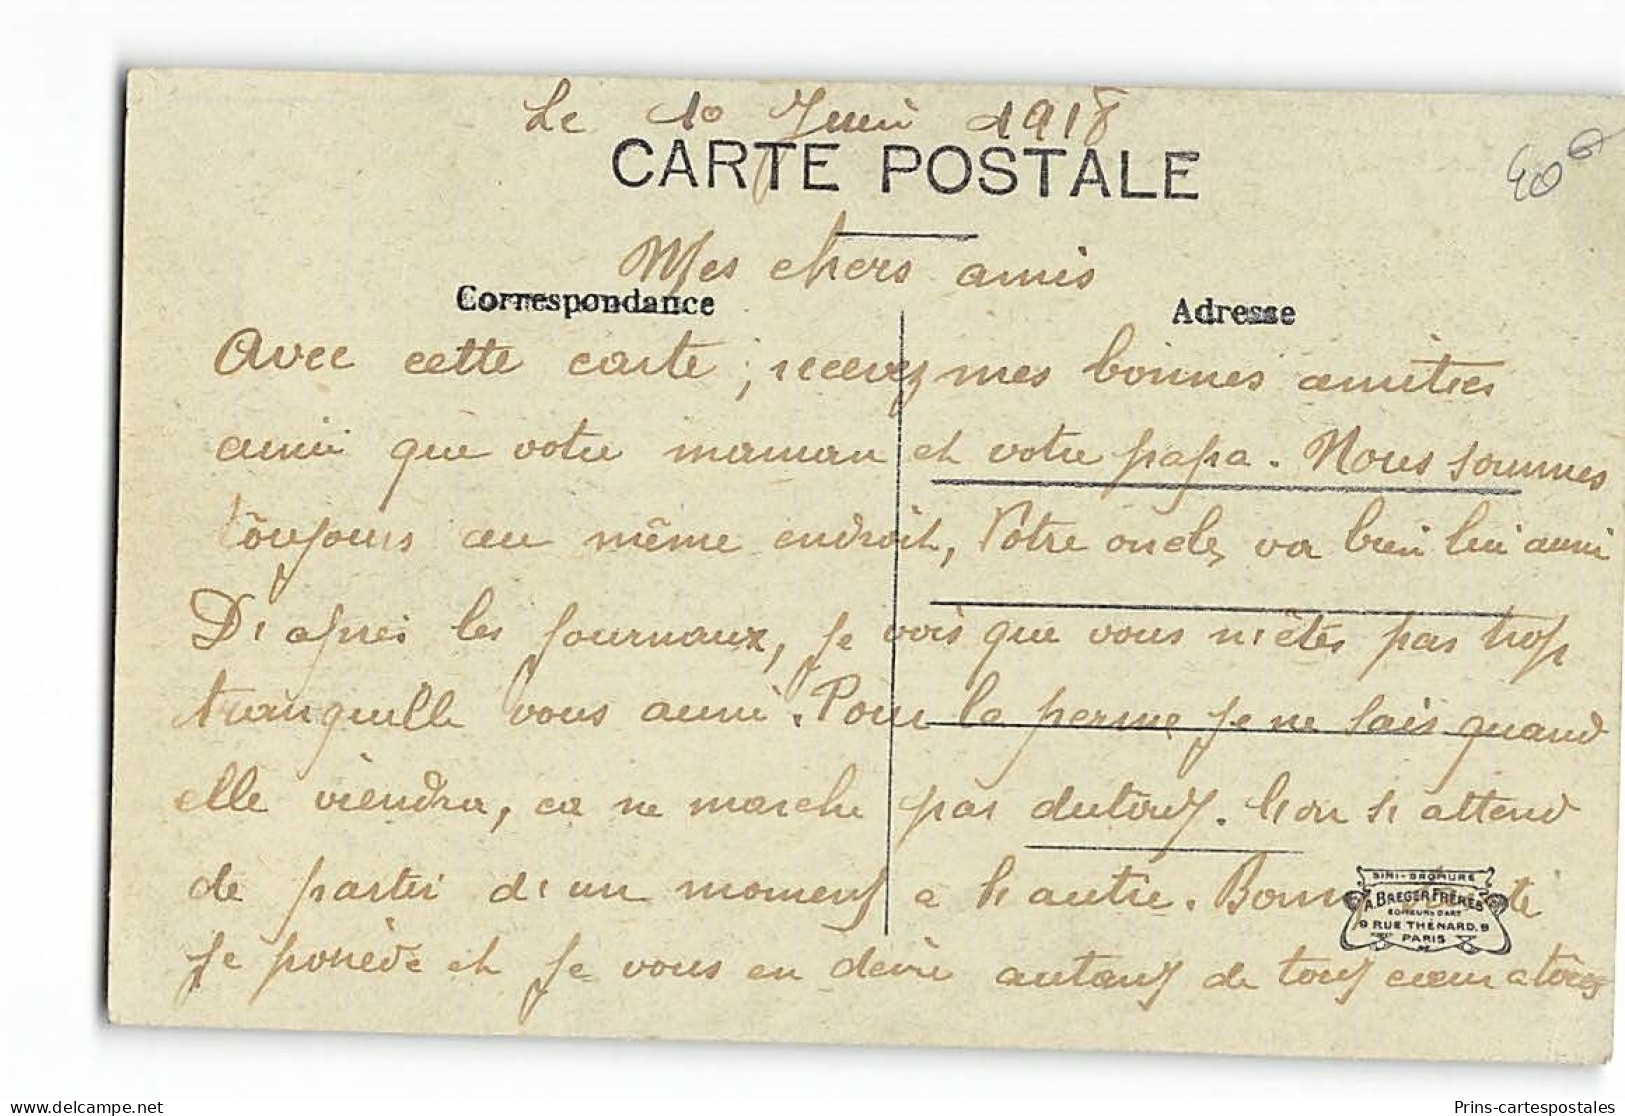 Le 10 Juin 1918
40
CARTE POSTALE
Mes chers amis
Correspondance
Adresse
Avec cette carte, recevez mes bonnes amities
ainsi que votre maman et votre papa. Nous sommes
toujours au même endroit, Votre oncle va bien lui aussi
D'après les journaux, je vois que vous n'êtes pas trop
tranquille vous aussi. Pour la perme je ne sais quand
elle viendra, ca ne marche pas dutout. L'on s'attend
de partir d'un moment a l'autre. Bonne santé
je possède et je vous en désire autant de tout cœur a tous
SIMI-BROMURE
A. BREGER FRÈRES
EDITEURS D'ART
9 RUE THÉNARD, 9
PARIS
delcampe.net
Prins-cartespostales